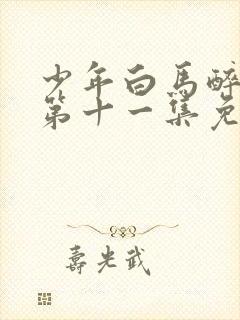 少年白马醉
第十一集免
寿光武